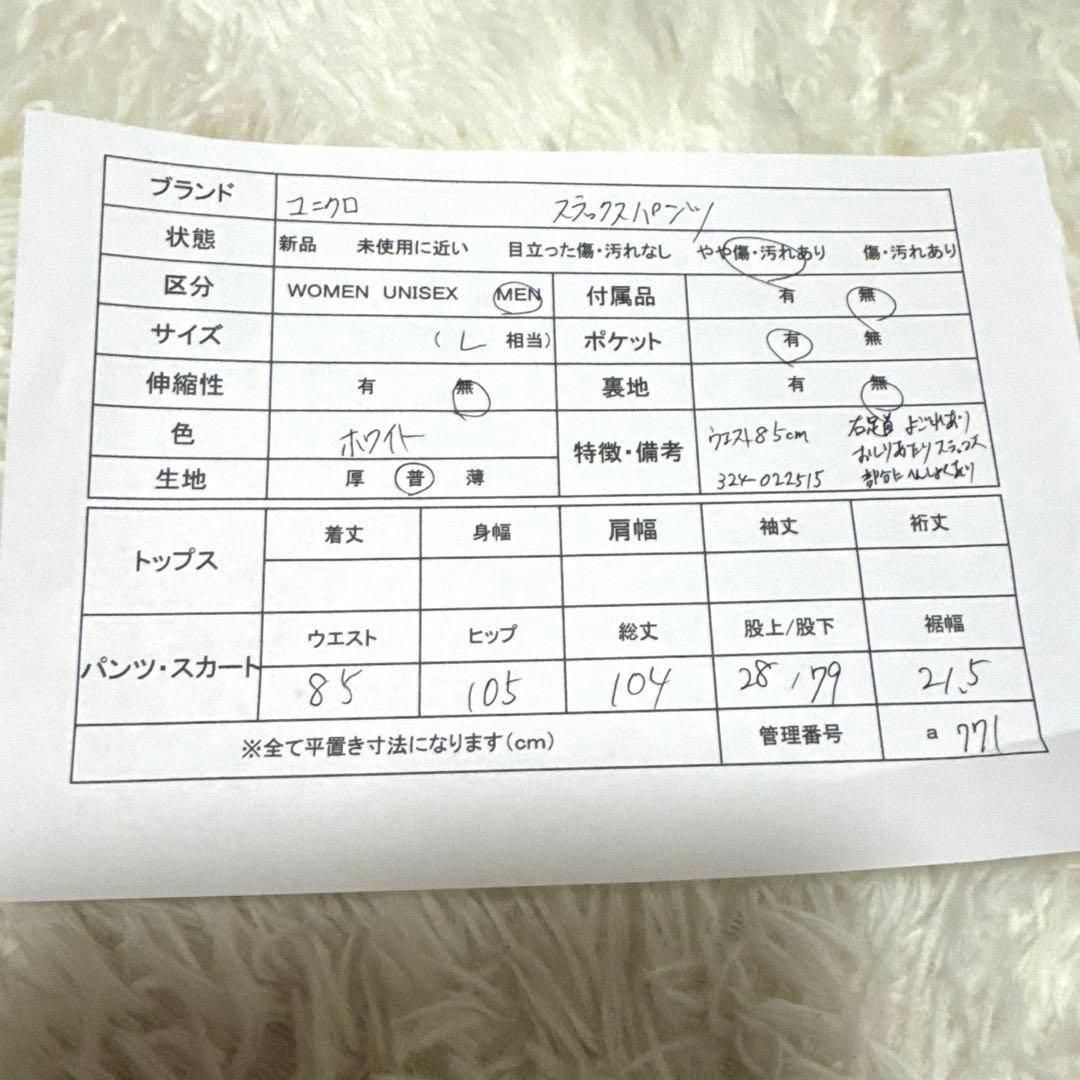 ブランド ユニクロ スラックスパンツ
状態 新品 未使用に近い 目立った傷・汚れなし やや傷・汚れあり 傷・汚れあり
区分 WOMEN UNISEX MEN 付属品 有 無
サイズ (L 相当) ポケット 有 無
伸縮性 有 無 裏地 有 無
色 ホワイト 特徴・備考 ウエスト85cm 右足首 よごれあり
おしりあたり スラックス
324-022515 部分にへんしょくあり
生地 厚 普 薄
トップス 着丈 身幅 肩幅 袖丈 裄丈
パンツ・スカート ウエスト ヒップ 総丈 股上/股下 裾幅
85 105 104 28 / 79 21.5
※全て平置き寸法になります(cm) 管理番号 a 771